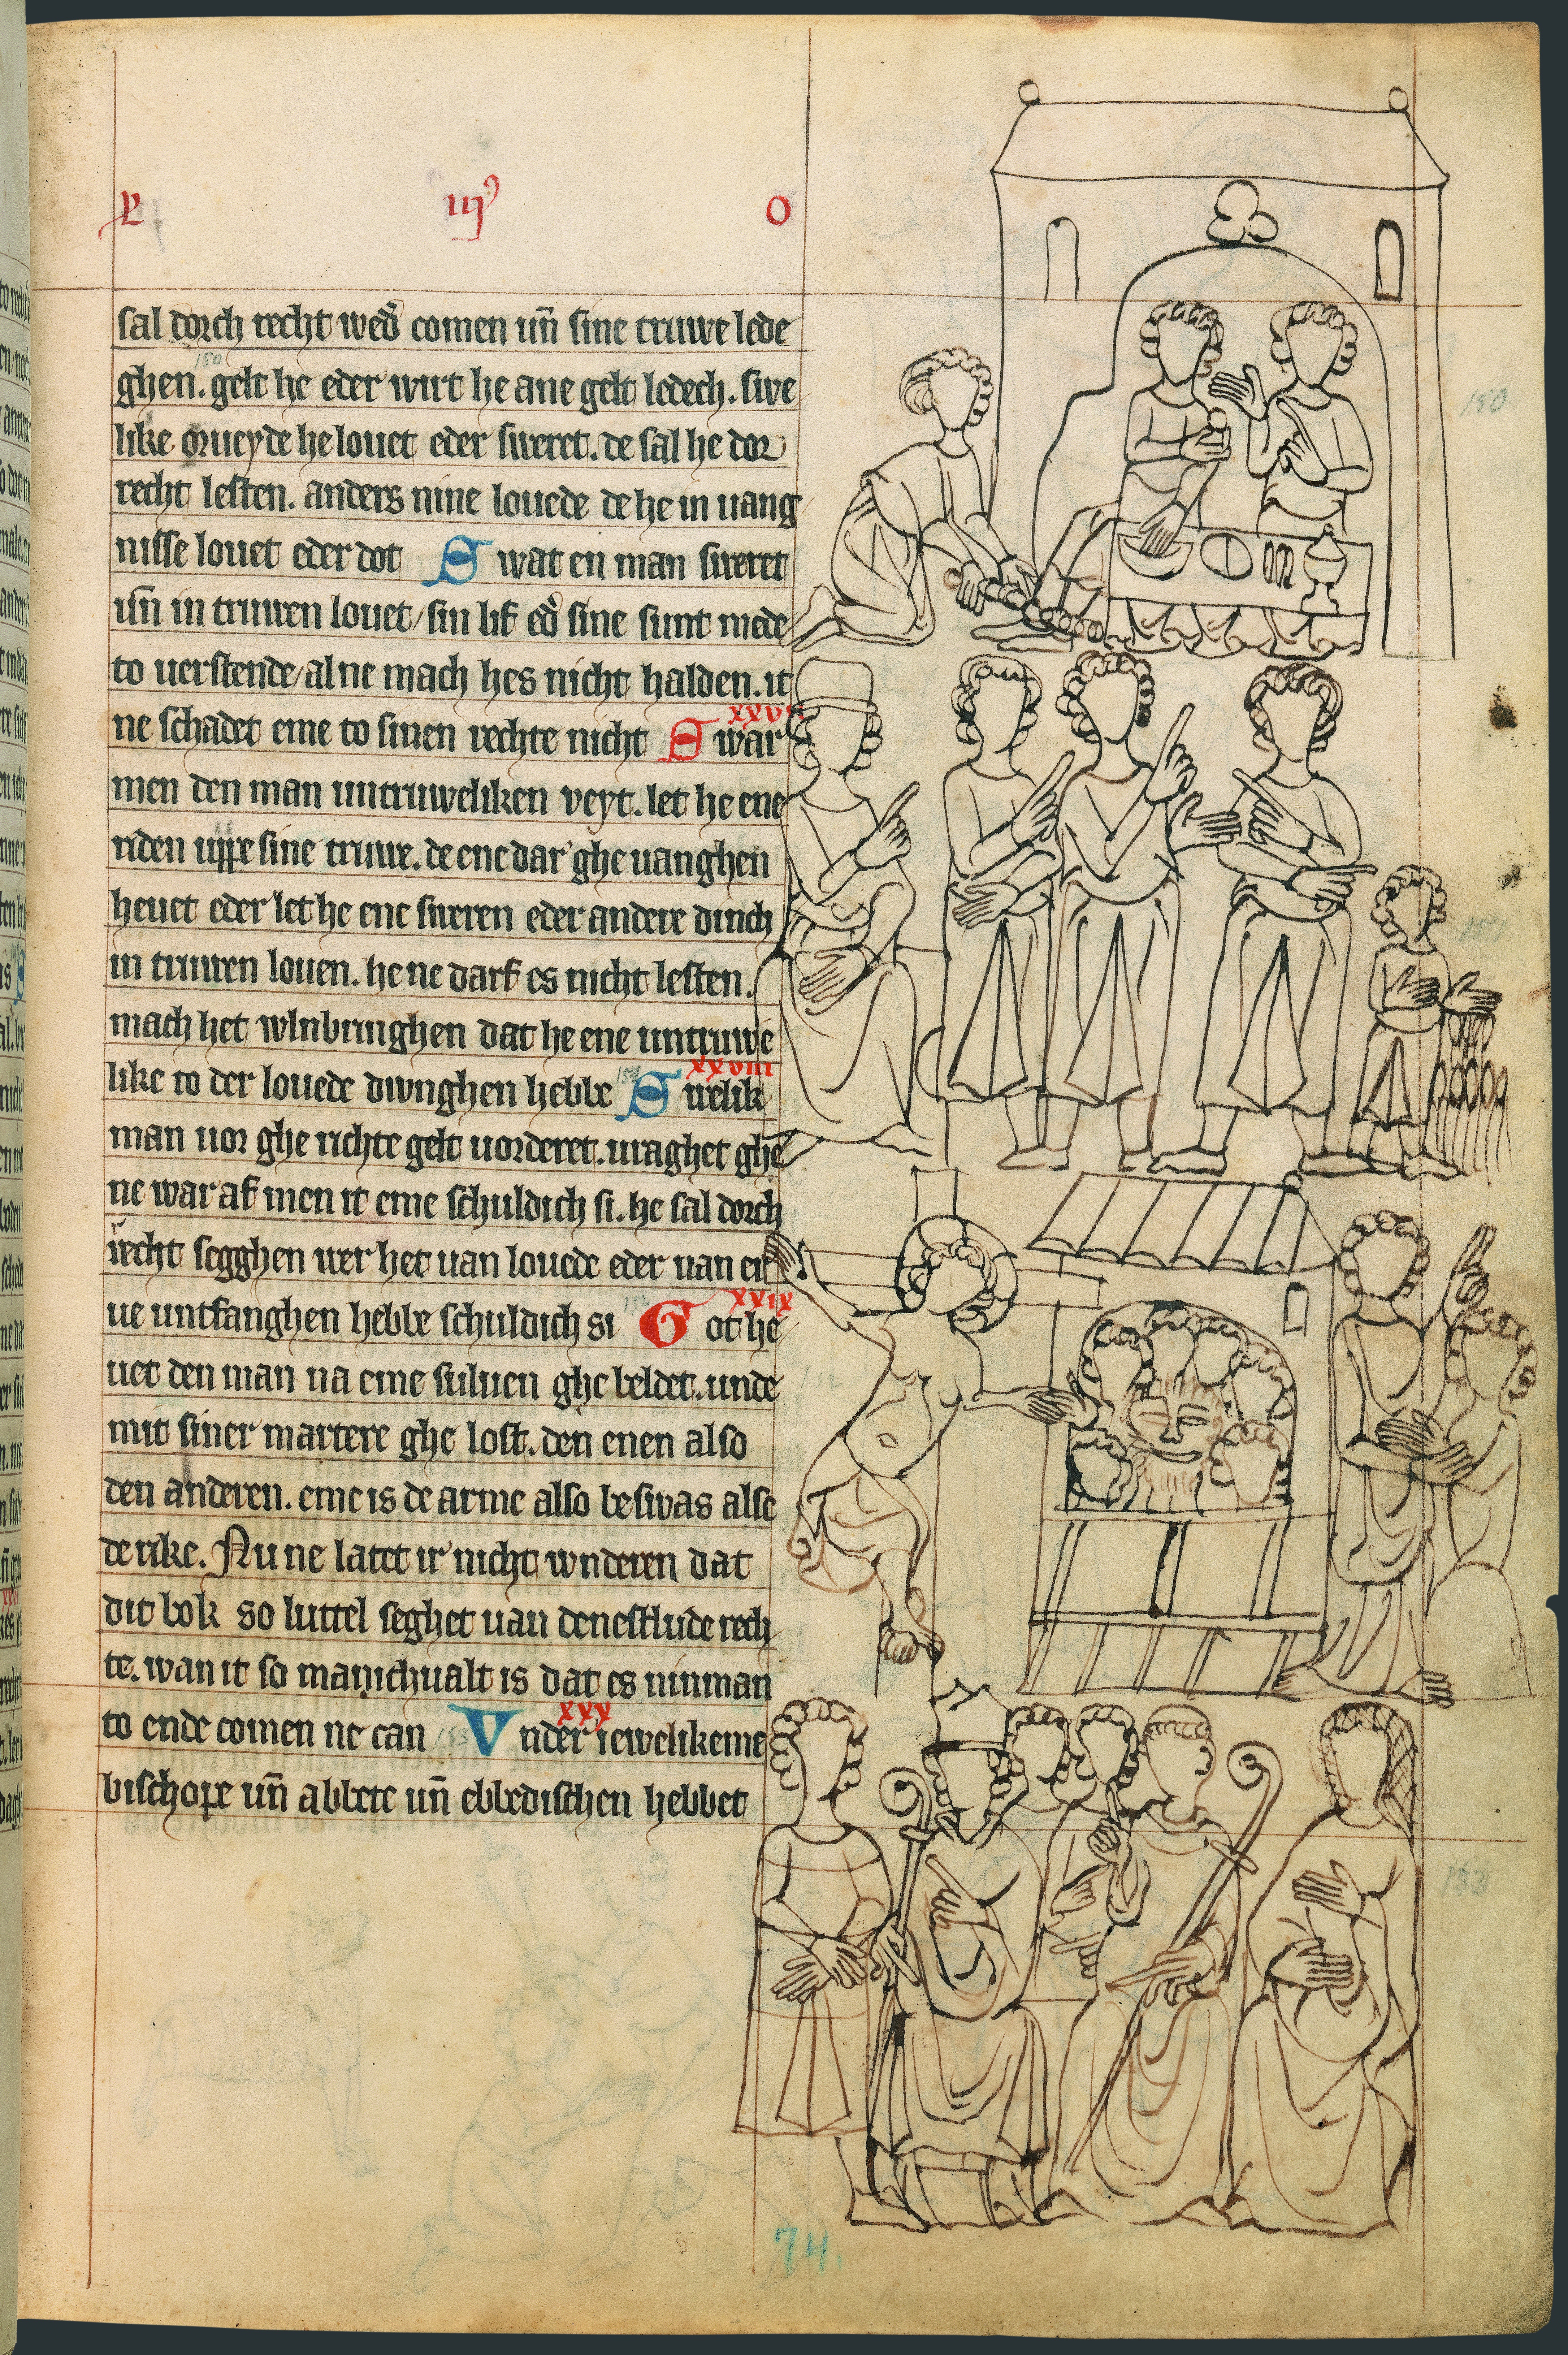 L iijꝰ o
sal dorch recht wed̉ comen un̄ sine truwe lede
ghen. gelt he eder wirt he ane gelt ledech. swe
like orueyde he louet eder sweret. de sal he dor
recht lesten. anders nine louede de he in uang
nisse louet eder dot Swat en man sweret
un̄ in truwen louet/ sin lif ed̉ sine sunt mede
to uerstende/ alne mach hes nicht halden. it
ne schadet eme to sinen rechte nicht Swar
men den man untruweliken veyt. let he ene
riden uppe sine truwe. de ene dar ghe uanghen
heuet eder let he ene sweren eder andere dinch
in truwen louen. he ne darf es nicht lesten.
mach het wlnbringhen dat he ene untruwe
xxviii
like to der louede dwinghen hebbe Swelik
man uor ghe richte gelt uorderet. uraghet ghe
ne war af men it eme schuldich si. he sal dorch
recht segghen wer het uan louede eder uan er
xxix
ue untfanghen hebbe schuldich si Got he
uet den man na eme suluen ghe beldet. unde
mit siner martere ghe lost. den enen also
den anderen. eme is de arme also beswas alse
de rike. Nu ne latet ir nicht wnderen dat
dit bok so luttel seghet uan denestlude rech
te. wan it so manichualt is dat es ninman
xxx
to ende comen ne can Under iewelikeme
bischope un̄ abbete un̄ ebbedischen hebbet
150
153
74.